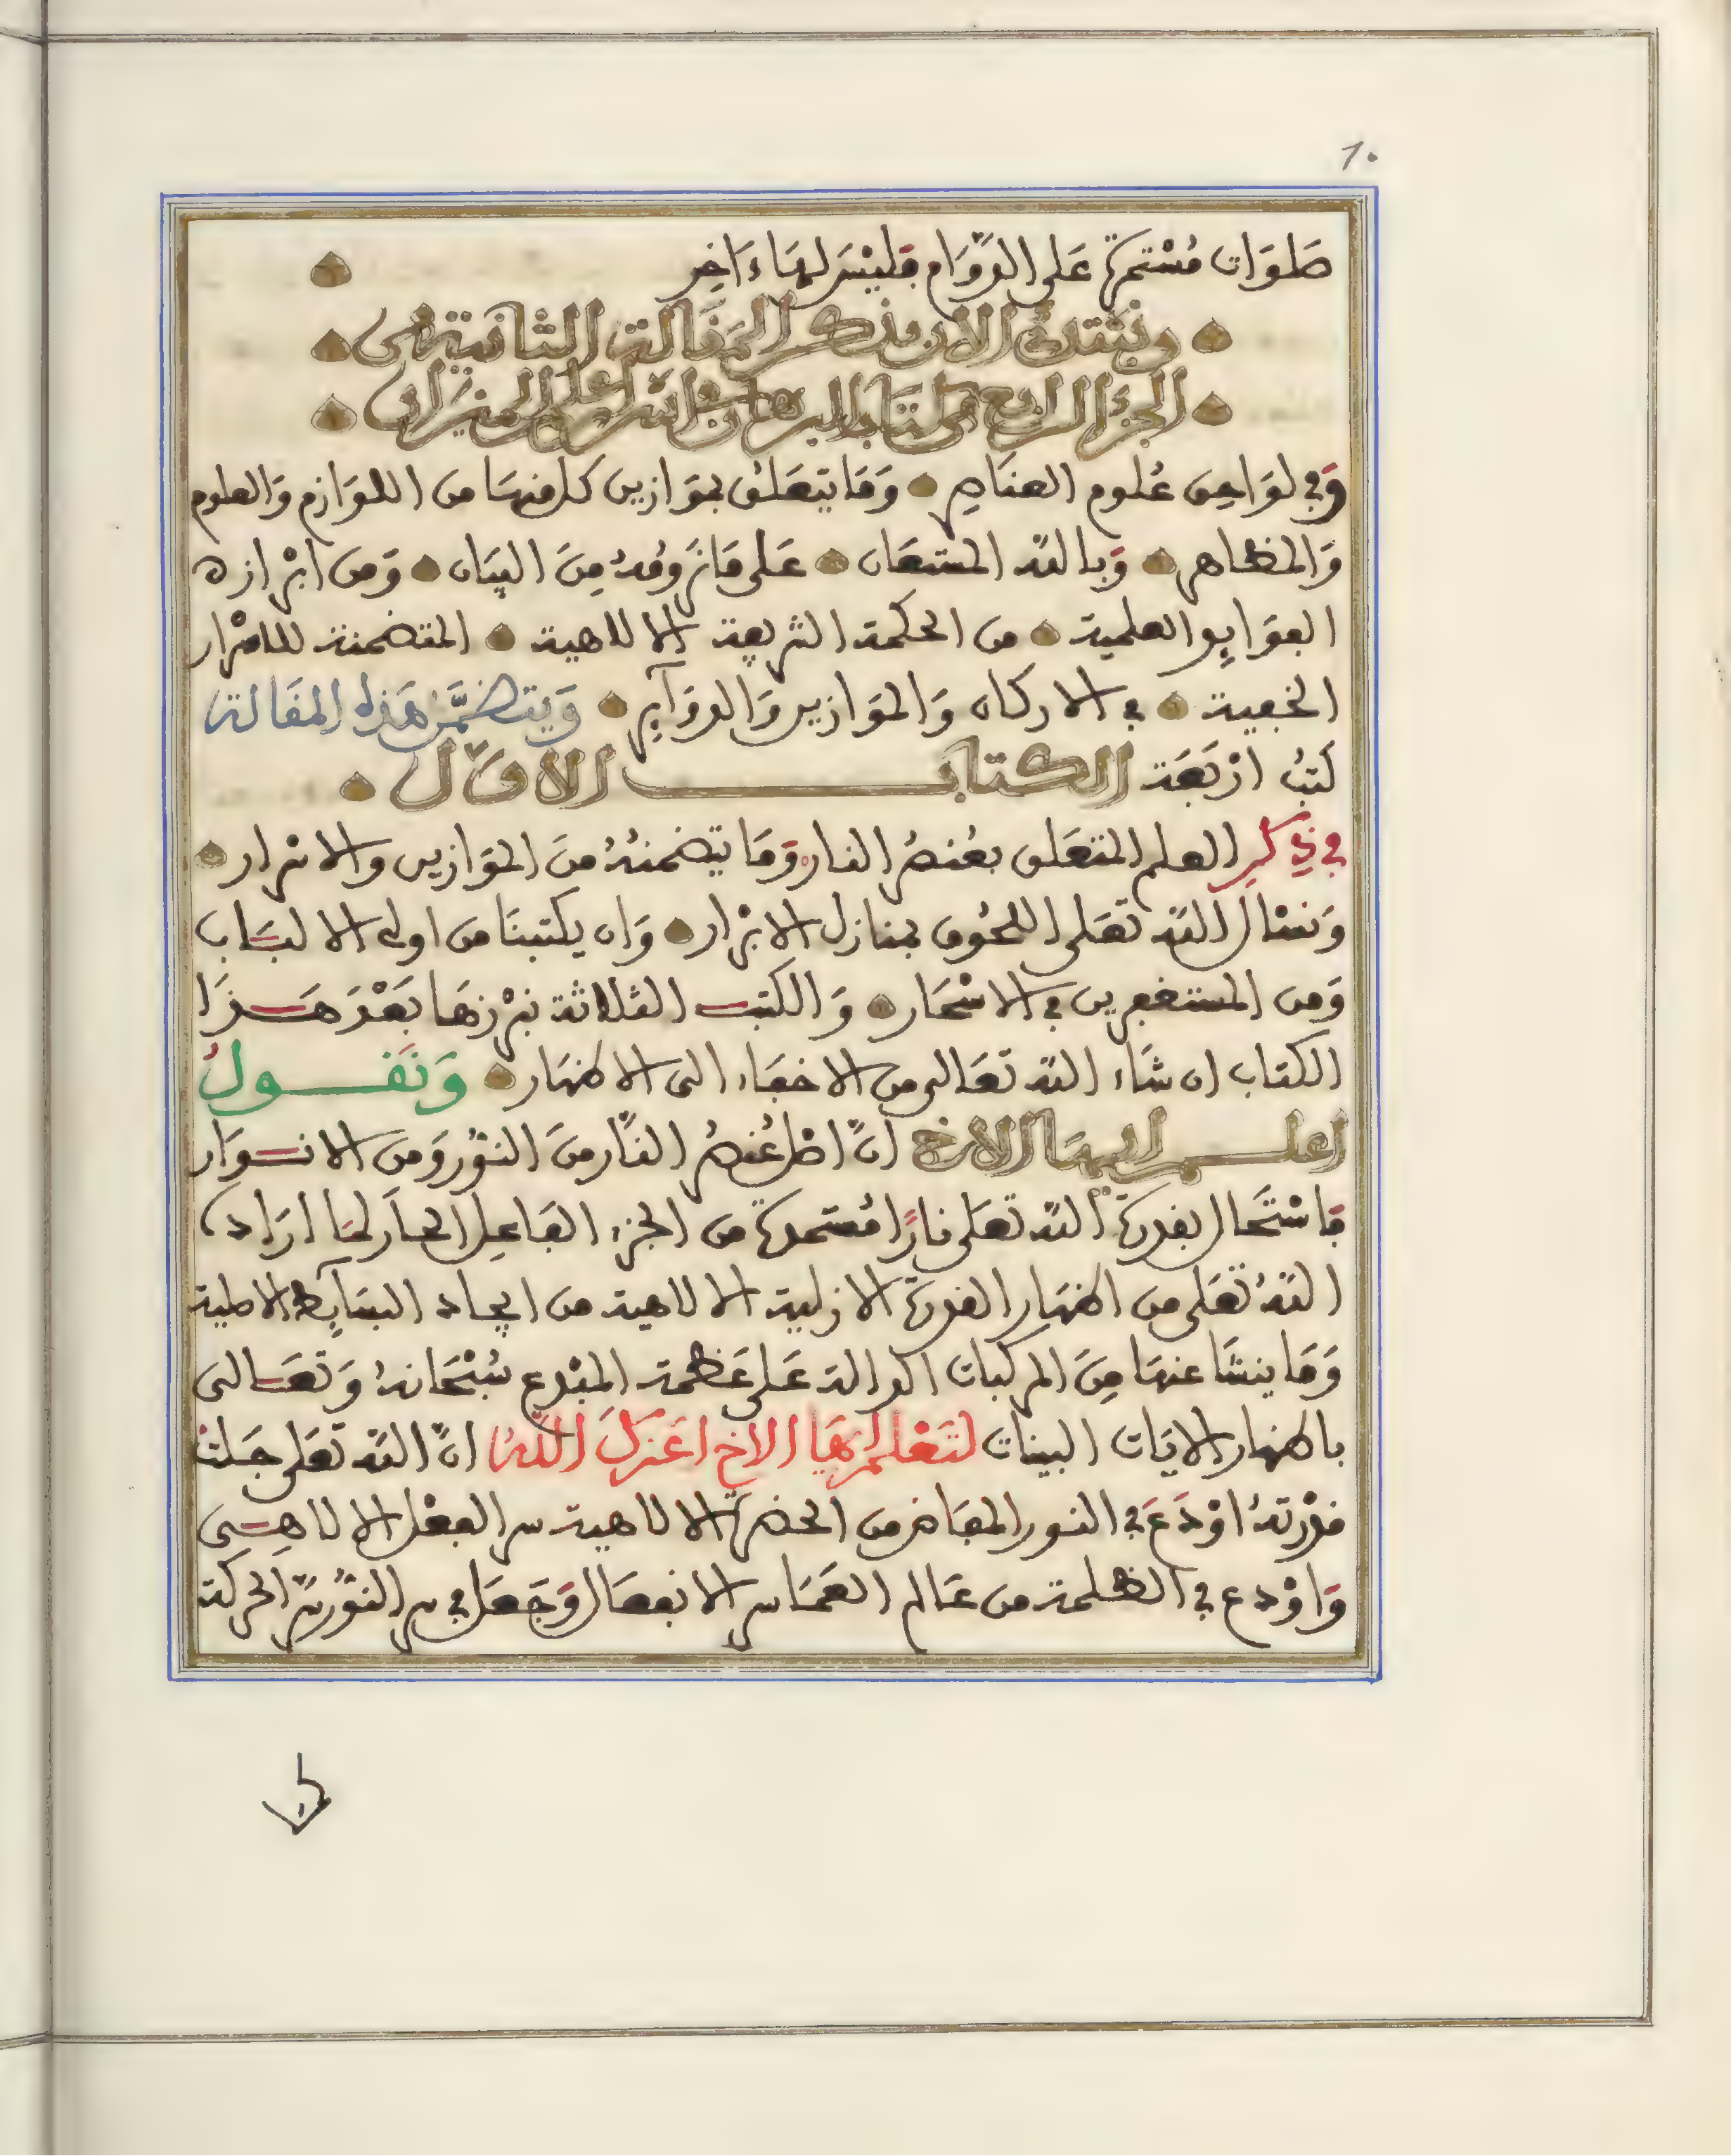 10
صَلَوَات مُسْتمرة عَلى الدّوَام فليْسَ لهَا ءَاخِر
ونبتدئ الان بذكر المقالة الثانية من
الجزء الرابع من كتاب البرهان في اسرار علم الميزان
وَفي لوَاحِق عُلوم العنَاصِر وَمَا يتعَلق بموَازين كل منهَا من اللوَازم وَالعلوم
وَالمظاهر وَبالله المستعَان عَلى مَا نَرومُهُ مِنَ البيَان وَمن ابْرازه
الفوَايد العلمية من الحكمة الشريفة الالاهية المتضمنة للاسْرار
الخفية في الاركان وَالموَازين وَالدوَآير وَيتضمَّن هَذه المقَالة
كتبُ ارْبَعَة الكتاب الاوّل
في ذِكرِ العلم المتعَلق بعُنصُر النار وَمَا يتضمنهُ منَ الموَازين والاسرار
وَنسْال الله تعَلى اللحُوق بمنازل الابْرار وَان يكتبنَا من اولى الالبَاب
وَمن المستغفرين في الاسْحَار وَالكتب الثلاثة نبْرزهَا بَعْدَ هَذَا
الكتاب ان شَاء الله تعَالى من الاخفَاء الى الاظهَار وَنَقُولُ
اعلم ايهَا الاخ انّ اصْل عُنصُر النّار منَ النوُر وَمن الانوَار
فاسْتَحَال بقدرة الله تعَلى نارًا مُستمدة من الجزء الفَاعِل الحَار لمَا ارَاد
اللهُ تعَلى من اظهَار القدرة الازلية الالاهية من ايجاد البسَآيط الاصلية
وَمَا ينشَا عنهَا مِنَ المركبات الدالة عَلى عَظمة المبْدع سُبْحَانهُ وَتعَالى
باظهار الايَات البينات لتَعْلم ايهَا الاخ اعَزكَ اللهُ انّ الله تعَلى جَلتْ
قدْرتهُ اوْدَعَ في النور المفَاض من الحضرة الالاهية سر الفعْل الالاهِي
وَاوْدع في الظلمة من عَالم العَمَا سر الانفعَال وَجَعَل في سر النوُر سرّ الحركة